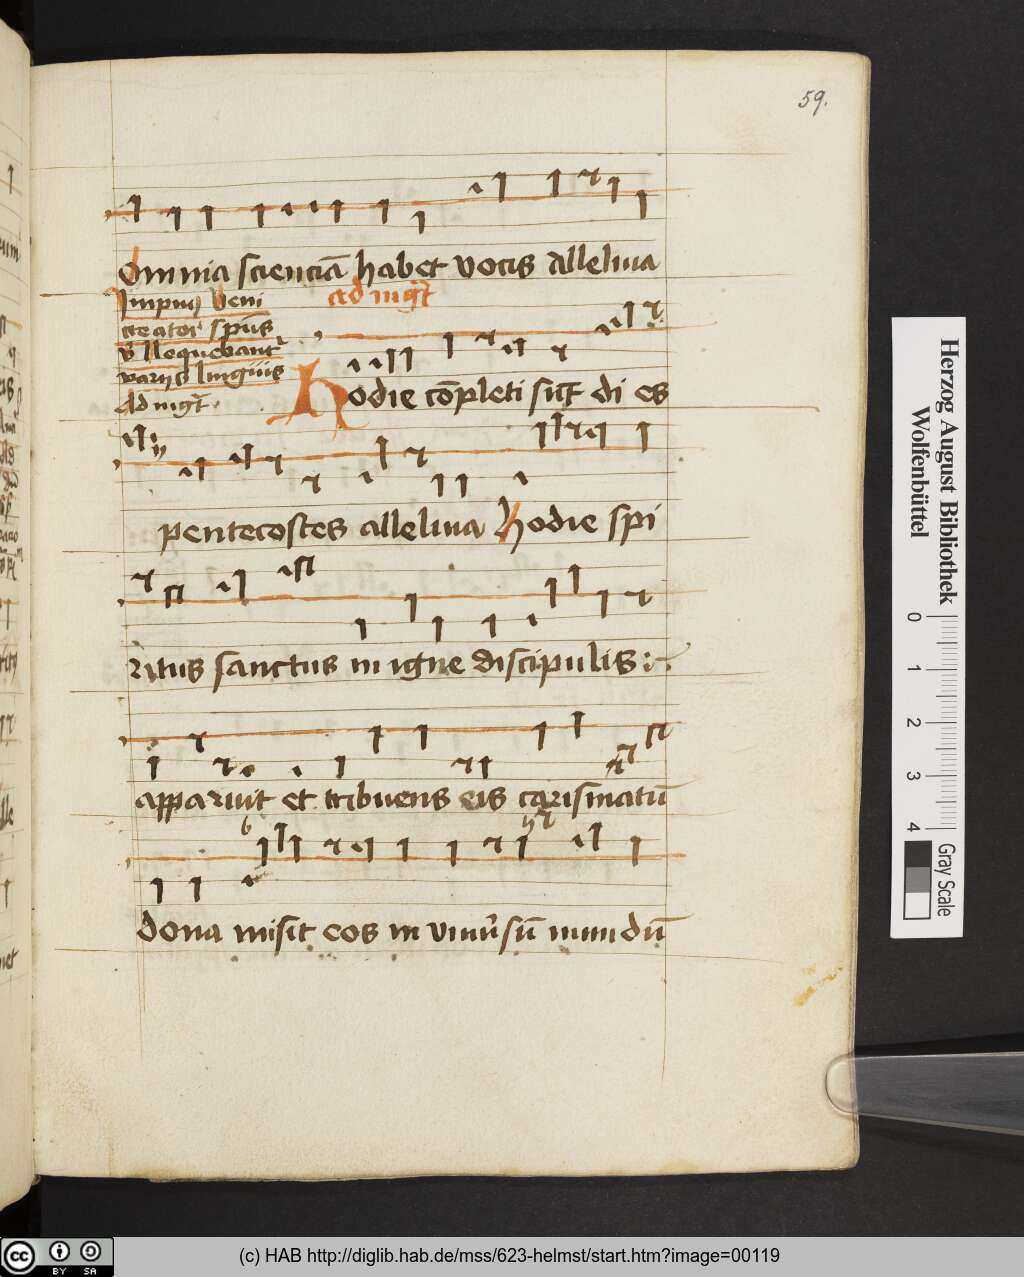 59.
Omnia scienciā habet vocis Alleluia
Impnꝰ Veni
creator spūs
ad mgt̄
loquebant᷑
varijs linguis
Ad mgt̄.
Hodie cōpleti sūt di es
pentecostes alleluia Hodie spi
ritus sanctus in igne discipulis
apparuit et tribuens eis carismatū
dona misit eos in vniu᷑sū mundū
Herzog August Bibliothek
Wolfenbüttel
0 1 2 3 4
Gray Scale
cc BY SA
(c) HAB http://diglib.hab.de/mss/623-helmst/start.htm?image=00119